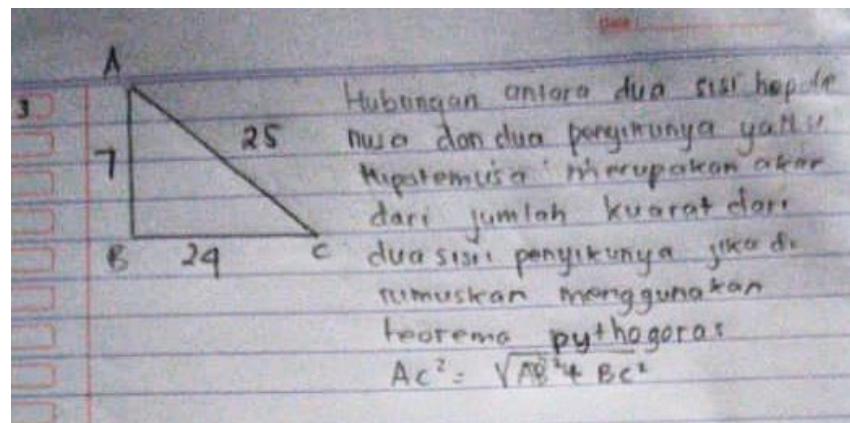 Date
3
A
7
25
B
24
C
Hubungan antara dua sisi
nusa dan dua penyikunya yaitu
Hipotemusa merupakan akar
dari jumlah kuarat dari
dua sisi penyikunya jika di
rumuskan menggunakan
teorema pythagoras
AC² = √AB² + BC²